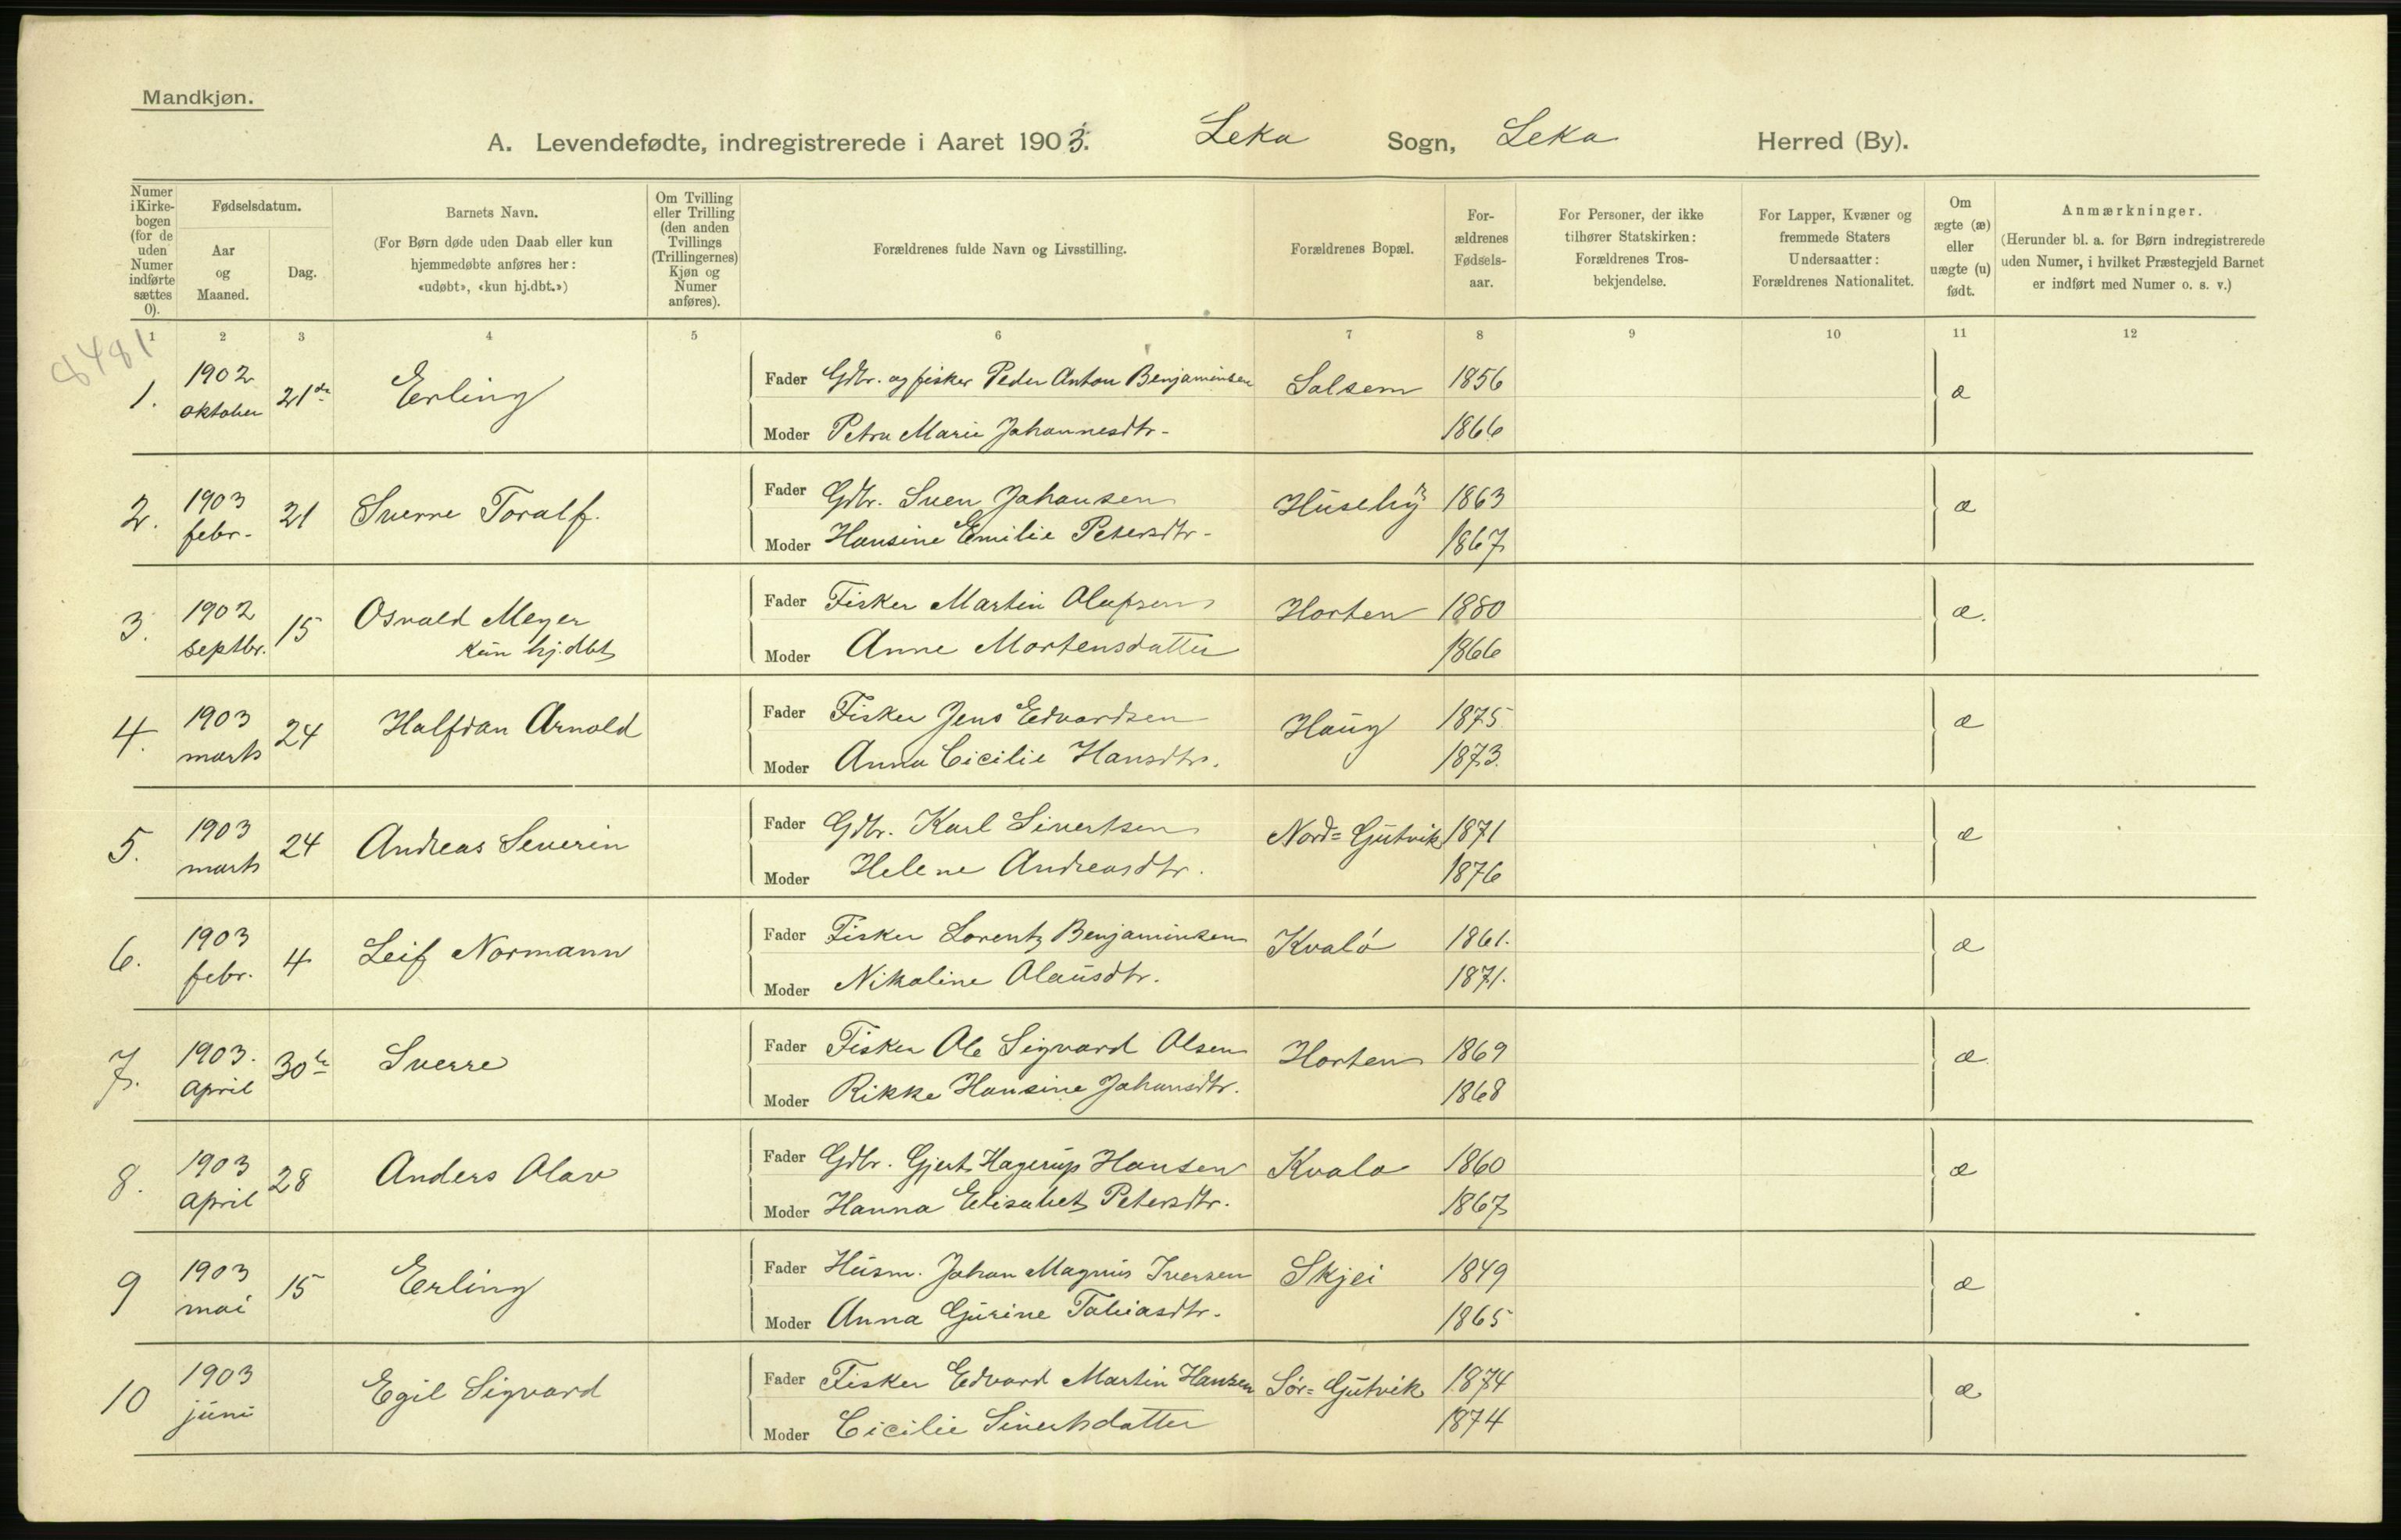 Mandkjøn.
A. Levendefødte, indregistrerede i Aaret 1903. Leka Sogn, Leka Herred (By).
Numer i Kirkebogen (for de uden Numer indførte sættes 0).
Fødselsdatum.
Aar og Maaned.
Dag.
Barnets Navn.
(For Børn døde uden Daab eller kun hjemmedøbte anføres her: «udøbt», «kun hj.dbt.»)
Om Tvilling eller Trilling (den anden Tvillings (Trillingernes) Kjøn og Numer anføres).
Forældrenes fulde Navn og Livsstilling.
Forældrenes Bopæl.
For-ældrenes Fødsels-aar.
For Personer, der ikke tilhører Statskirken: Forældrenes Tros-bekjendelse.
For Lapper, Kvæner og fremmede Staters Undersaatter: Forældrenes Nationalitet.
Om ægte (æ) eller uægte (u) født.
Anmærkninger.
(Herunder bl. a. for Børn indregistrerede uden Numer, i hvilket Præstegjeld Barnet er indført med Numer o. s. v.)
1 2 3 4 5 6 7 8 9 10 11 12
8481
1. 1902 oktober 21de Erling Fader Gdbr. og fisker Peder Anton Benjaminsen Solsem 1856 æ
Moder Petra Marie Johannesdtr. 1866
2. 1903 febr. 21 Sverre Toralf. Fader Gdbr. Sven Johansen Huseby 1863 æ
Moder Hansine Emilie Petersdtr. 1867
3. 1902 septbr. 15 Osvald Meyer kun hj.dbt Fader Fisker Martin Olufsen Horten 1880 æ.
Moder Anne Mortensdatter 1866
4. 1903 marts 24 Halfdan Arnold Fader Fisker Jens Edvardsen Haug 1875 æ
Moder Anna Cicilie Hansdtr. 1873.
5. 1903 marts 24 Andreas Severin Fader Gdbr. Karl Sivertsen Nord=Gutvik 1871 æ
Moder Helene Andreasdtr. 1876
6. 1903 febr. 4 Leif Normann Fader Fisker Lorentz Benjaminsen Kvalø 1861. æ
Moder Nikoline Olausdtr. 1871.
7. 1903. april 30te Sverre Fader Fisker Ole Sigvard Olsen Horten 1869 æ
Moder Rikke Hansine Johansdtr. 1868
8. 1903 april 28 Anders Olav Fader Gdbr. Gjert Hagerup Hansen Kvalø 1860 æ
Moder Hanna Elisabet Petersdtr. 1867
9 1903 mai 15 Erling Fader Husm. Johan Magnus Iversen Skjei 1849 æ
Moder Anna Gurine Tobiasdtr. 1865
10 1903 juni Egil Sigvard Fader Fisker Edvard Martin Hansen Sør=Gutvik 1874 æ
Moder Cicilie Sivertsdatter 1874